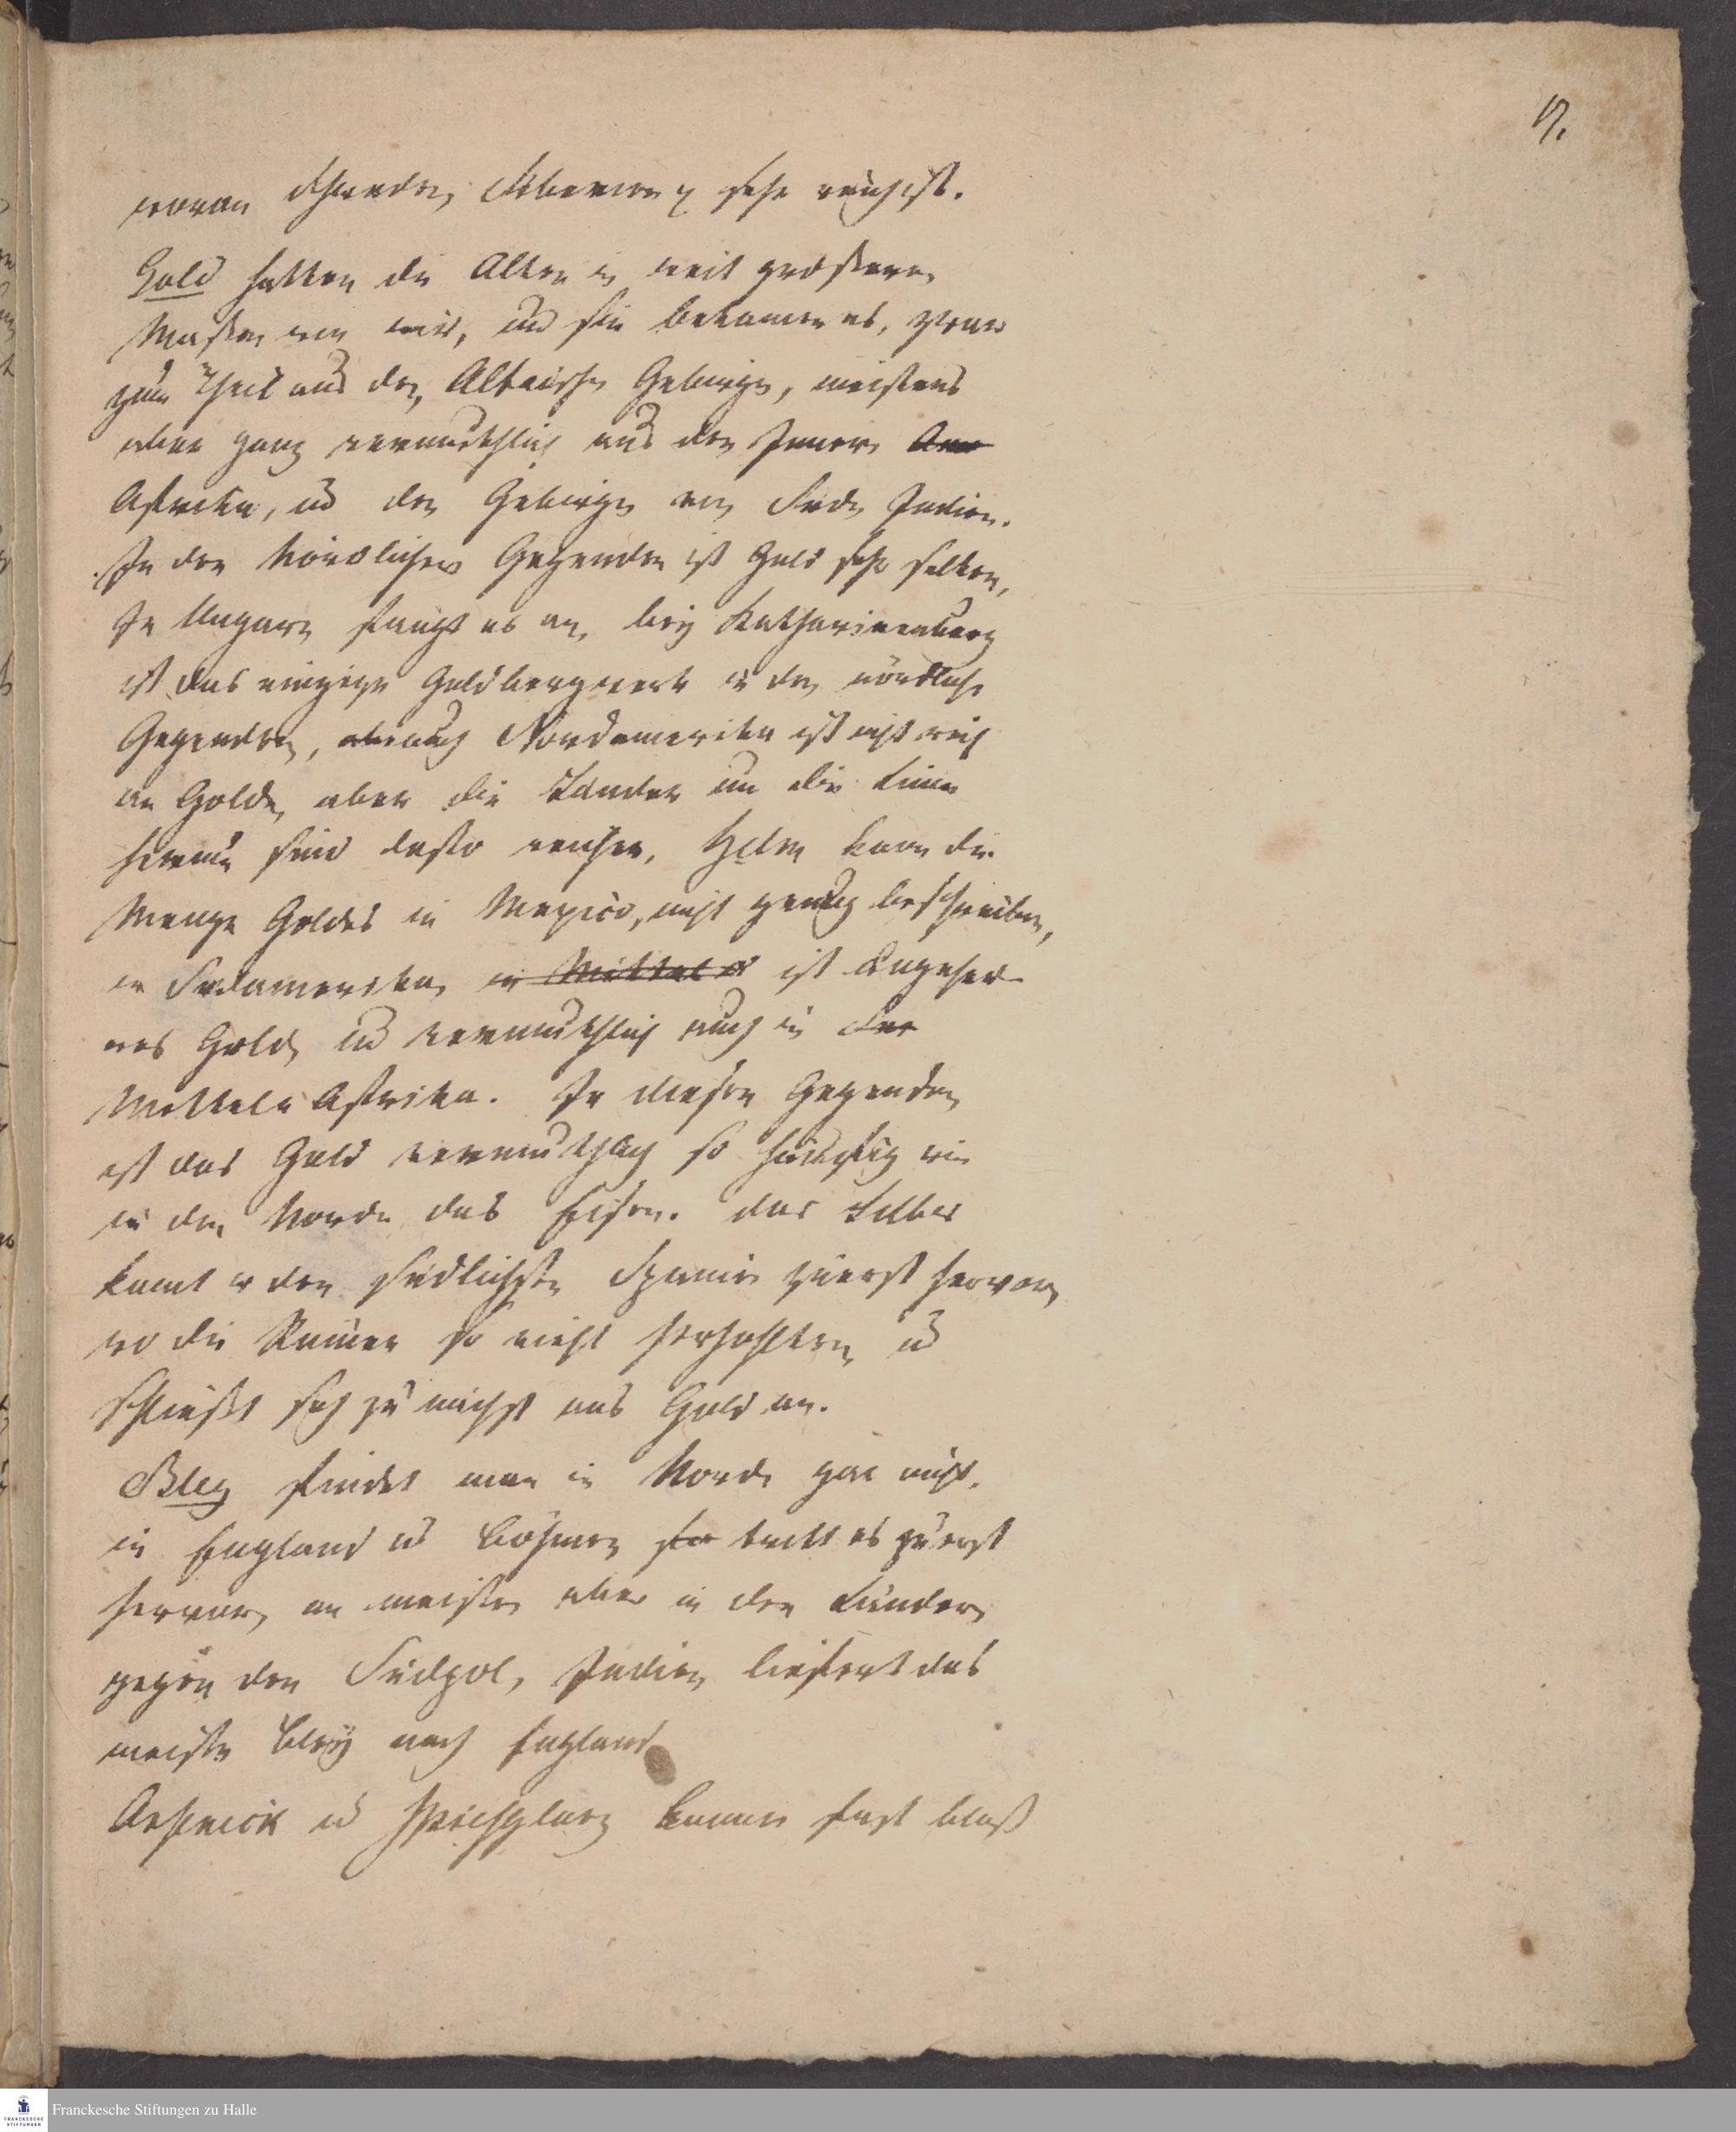 17.
woran Schweden, Siberien pp sehr reich ist.
Gold hatten die Alten in weit größern
Massen wie wir, und sie bekamen es, zwar
zum Theil aus den Altaischen Gebirgen, meistens
aber ganz vermuthlich aus dem Innern
Afrika, und den Gebirgen von Süd Indien.
In den Nördlichen Gegenden ist Gold sehr selten,
In Ungarn fängt es an, bey Katharinenburg
ist das einzige Goldbergwerk in den nördlichen
Gegenden, auch Nordamerika ist nicht reich
an Golde, aber die Länder um die Linie
herum sind desto reicher, Helm kann die
Menge Goldes in Mexico, nicht genug beschreiben,
in Südamerika, in Mittel ist Ungeheu-
res Gold, und vermuthlich auch in der
Mittelen Afrika. In diesen Gegenden
ist das Gold vermuthlich so häufig wie
in dem Norden das Eisen. das Silber
kömt in dem südlichsten Spanien zuerst hervor,
wo die Römer so viel herhohlten, und
schließt sich zu nächst ans Gold an.
Bley findet man in Norden gar nicht,
in England und Böhmen tritt es zuerst
hervor, am meisten aber in den Ländern
gegen den Südpol, Indien, liefert das
meiste Bley nach England
Arsenick und Spiesglanz kommen fast bloß
Franckesche Stiftungen zu Halle